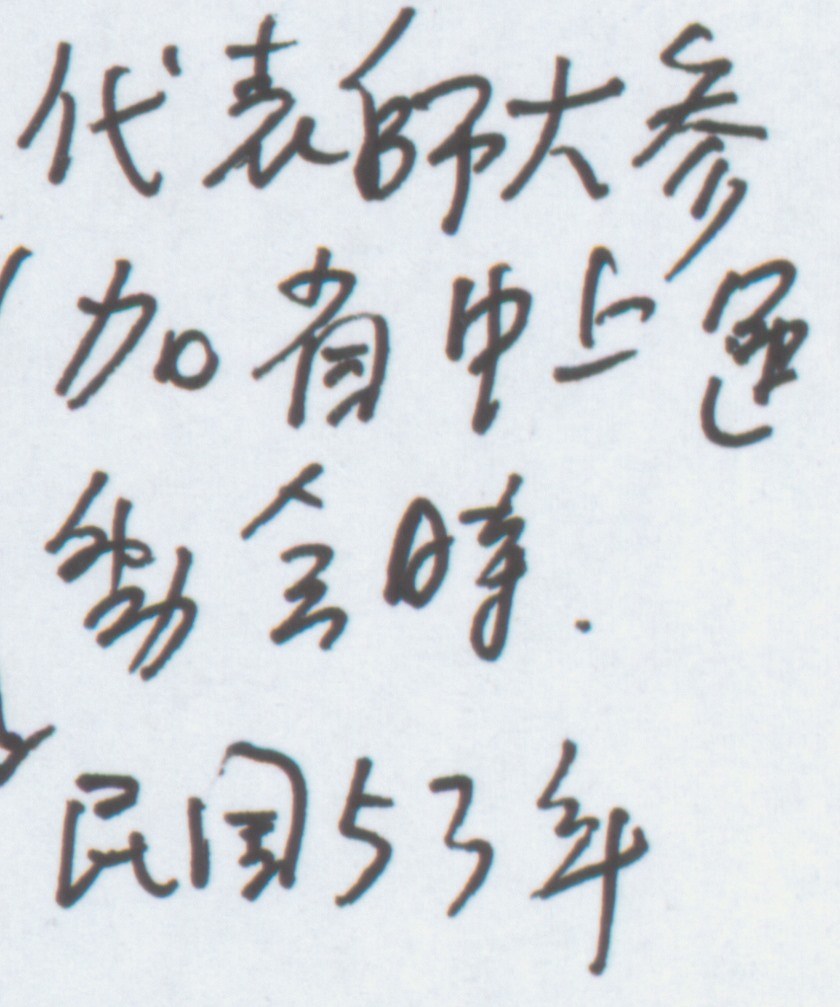 代表師大参
加省中上運
動会時.
民国53年